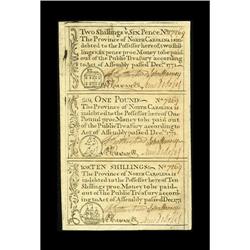 Two Shillings & Six Pence. No 7269
This Province of NORTH CAROLINA is
indebted to the Possessor hereof two shil-
lings & sixpence proc. Money to be paid
out of the Public Treasury according
to Act of Assembly passed Decr. 1771.
ONE POUND No 7269
This Province of NORTH CAROLINA is
indebted to the Possessor hereof One
Pound proc. Money to be paid
out of the Public Treasury according
to Act of Assembly passed Decr. 1771
TEN SHILLINGS. No 7269
This Province of NORTH CAROLINA is
indebted to the Possessor hereof Ten
Shillings proc. Money to be paid
out of the Public Treasury according
to Act of Assembly passed Decr. 1771